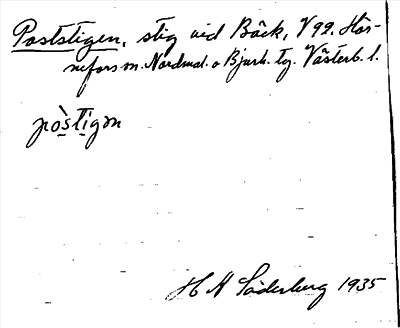 Poststigen, stig vid Bäck, V 92. Hör-
nefors sn. Nordmal. o Bjurh. tg. Västerb. l.
pòstigən
H H Söderberg 1935